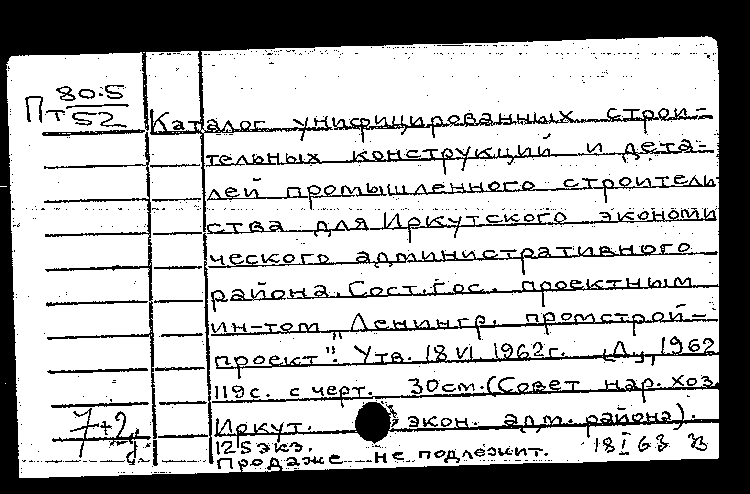 Пт 80-5
52
Каталог унифицированных строи-
тельных конструкций и дета-
лей промышленного строитель
ства для Иркутского экономи
ческого административного
района. Сост. Гос. проектным
ин-том „Ленингр. промстрой-
проект". Утв. 18 VI 1962 г. 1962
119 с. с черт. 30 см. (Совет нар. хоз.
Иркут. экон. адм. района).
7+2д.
125 экз.
Продаже не подлежит. 18 I 63